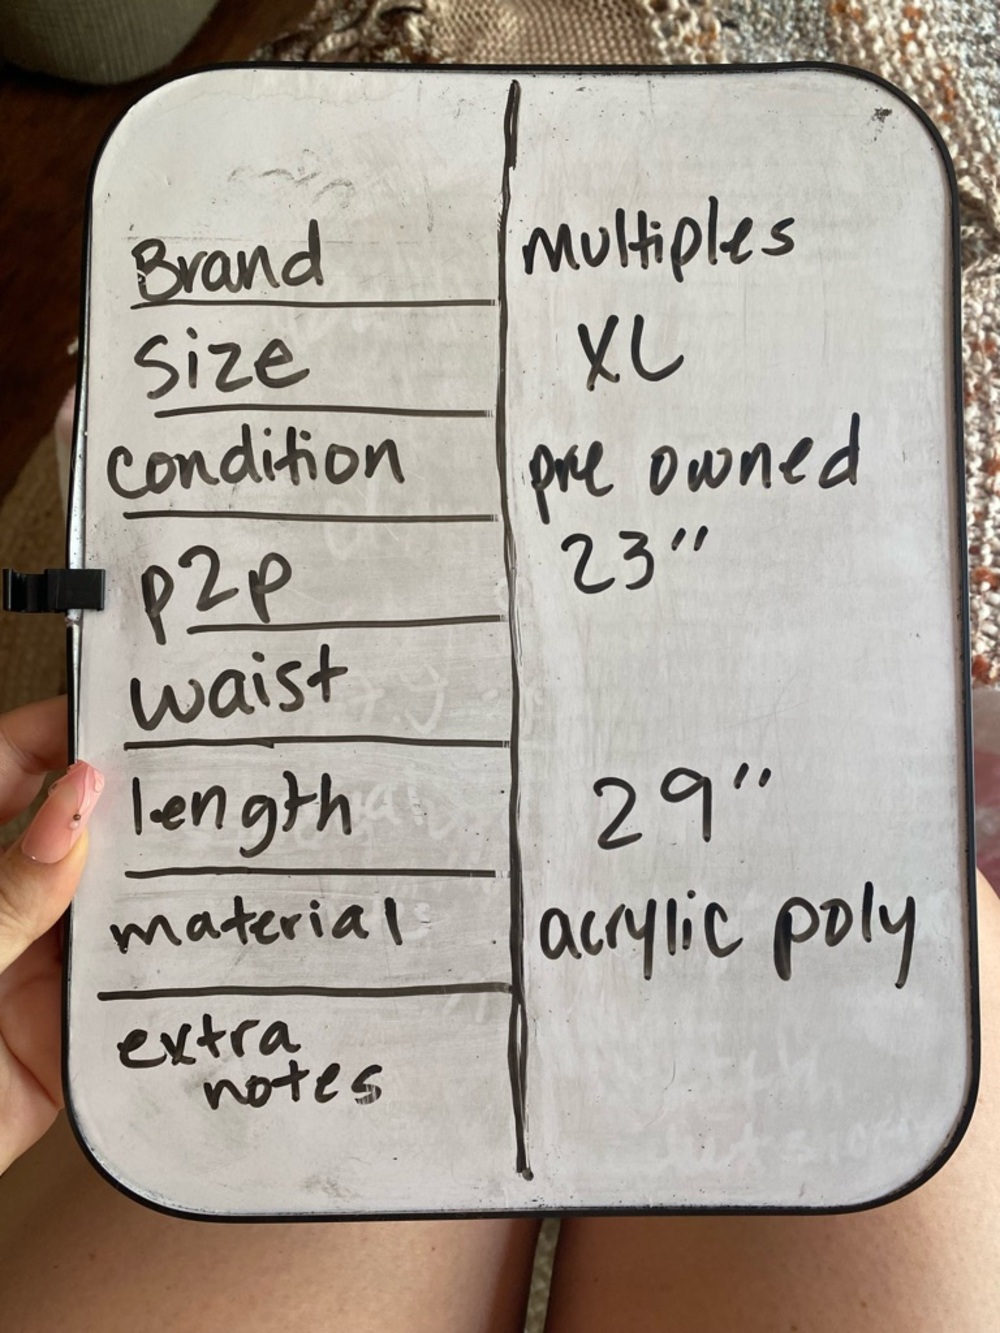 Brand multiples
Size XL
condition pre owned
p2p 23"
waist
length 29"
material acrylic poly
extra
notes